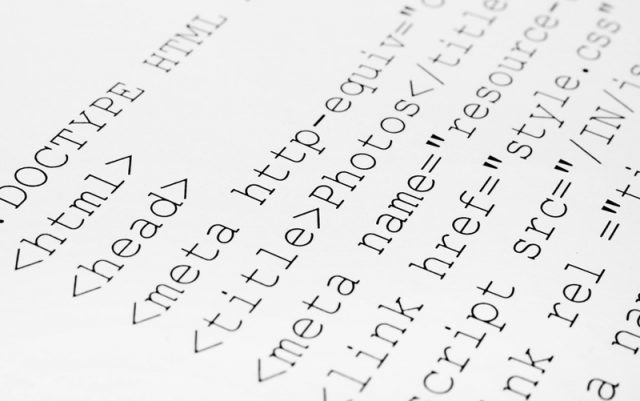 DOCTYPE HTML
<html>
<head>
<meta http-equiv="
<title>Photos</title
<meta name="resource-
<link href="style.css"
cript src="/IN/js
nk rel ="ti
a na